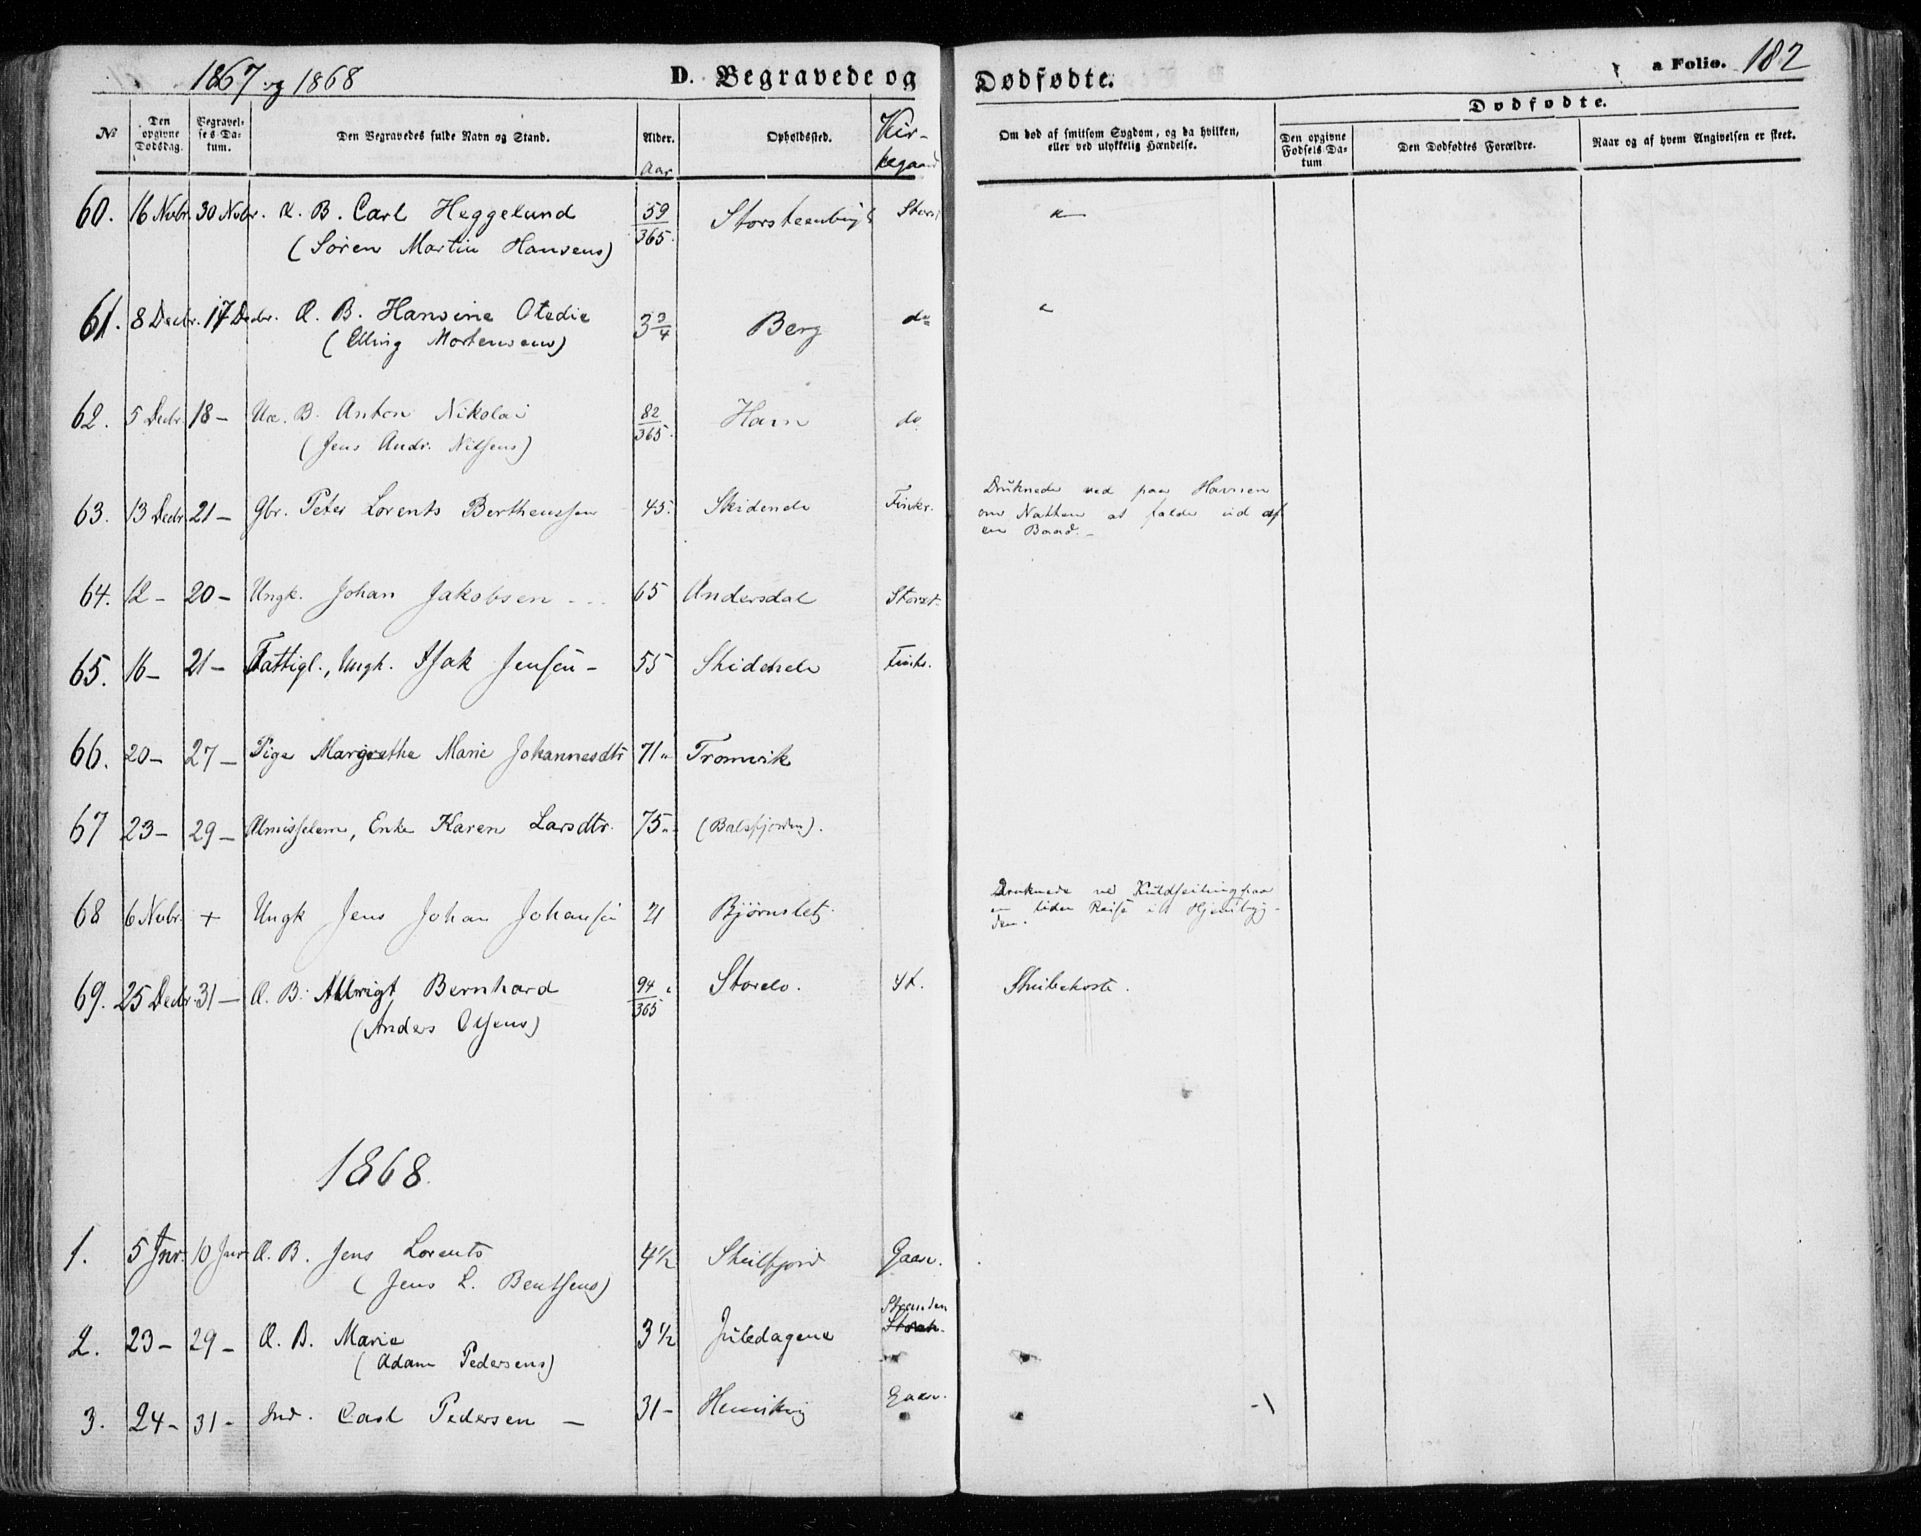 1867 og 1868 D. Begravede og Dødfødte. a Folio. 182
No Den opgivne Dødsdag. Begravelses Datum. Den Begravedes fulde Navn og Stand. Alder. Aar Opholdssted. Kirkegaard Om død af smitsom Sygdom, og da hvilken, eller ved ulykkelig Hændelse. Dødfødte. Den opgivne Fødsels Datum Den Dødfødtes Forældre. Naar og af hvem Angivelsen er skeet.
60. 16 Novbr. 30 Novbr. Æ. B. Carl Heggelund 59/365.
(Søren Martin Hansens)
61. 8 Decbr. 17 Decbr. Æ. B. Hansine Otedie 3 3/4 Berg do
(Elling Mortensens)
62. 5 Decbr. 18 - Uæ. B. Anton Nikolai 82/365. Havn do
(Jens Andr. Nilsens)
63. 13 Decbr. 21 - Gbr. Peter Lorents Bertheussen 45. Skidende Finkr. Druknede ved paa Havnen
om Natten at falde ud af
en Baad. -
64. 12 - 20 - Ungk. Johan Jakobsen - 65 Andersdal Storst.
65. 16 - 21 - Fattigl., Ungk. Isak Jensen - 55 Finkr.
66. 20 - 27 - Pige Margrethe Marie Johannesdtr 71 " Tromvik
67 23 - 29 - Almisselem, Enke Karen Larsdtr. 75 " (Balsfjorden).
68 6 Novbr. + Ungk Jens Johan Johansen 21 Bjørnslet Druknede ved Kuldseiling paa
en liden Reise i Hjembyg-
den.
69. 25 Decbr. 31 - Æ. B. Bernhard 94/365 Storelv. Strubehoste.
(Anders Olsens)
1868.
1. 5 Jnr. 10 Jnr Æ. B. Jens Lorents 4 1/2 Skulsfjord Gaasv.
(Jens L. Bentsens)
2. 23 - 29 - Æ. B. Marie 3 1/2 Straanden
(Adam Pedersens)
3. 24 - 31 - Ind. Carl Pedersen - 31 - Gaasv.